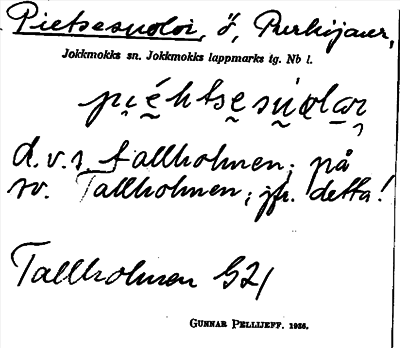 Pietsesuoloi, ö, Purkijaur,
Jokkmokks sn. Jokkmokks lappmarks tg. Nb l.
d.v.s. tallholmen; på
sv. Tallholmen; jfr. detta!
Tallholmen G21
GUNNAR PELLIJEFF. 1956.